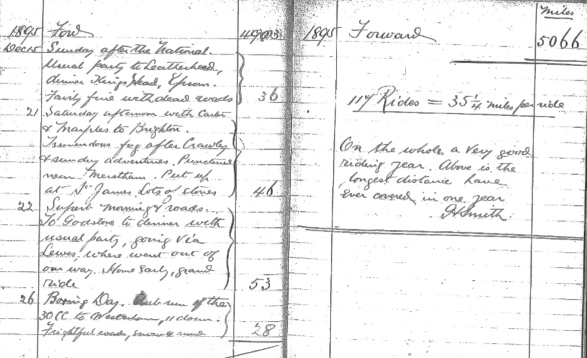 1895 Ford 4903
Dec 15 Sunday after the National.
Usual party to Leatherhead,
dinner Kings Head, Epsom.
Fairly fine with dead roads 36
21 Saturday afternoon with
& Marples to Brighton.
Tremendous fog after Crawley
& sundry adventures. Puncture
near Merstham. Put up
at St James. Lots of stories 46
22 Superb morning & roads.
To Godstone to dinner with
usual party, going via
Lewes, where went out of
our way. Home early, grand
ride 53
26 Boxing Day. Club run of the
30 CC to Westerham, 11 down.
Frightful roads, snow & mud 28
miles
1895 Forward 5066
117 Rides = 35 1/4 miles per ride
On the whole a very good
riding year. Above is the
longest distance have
ever covered in one year
Smith